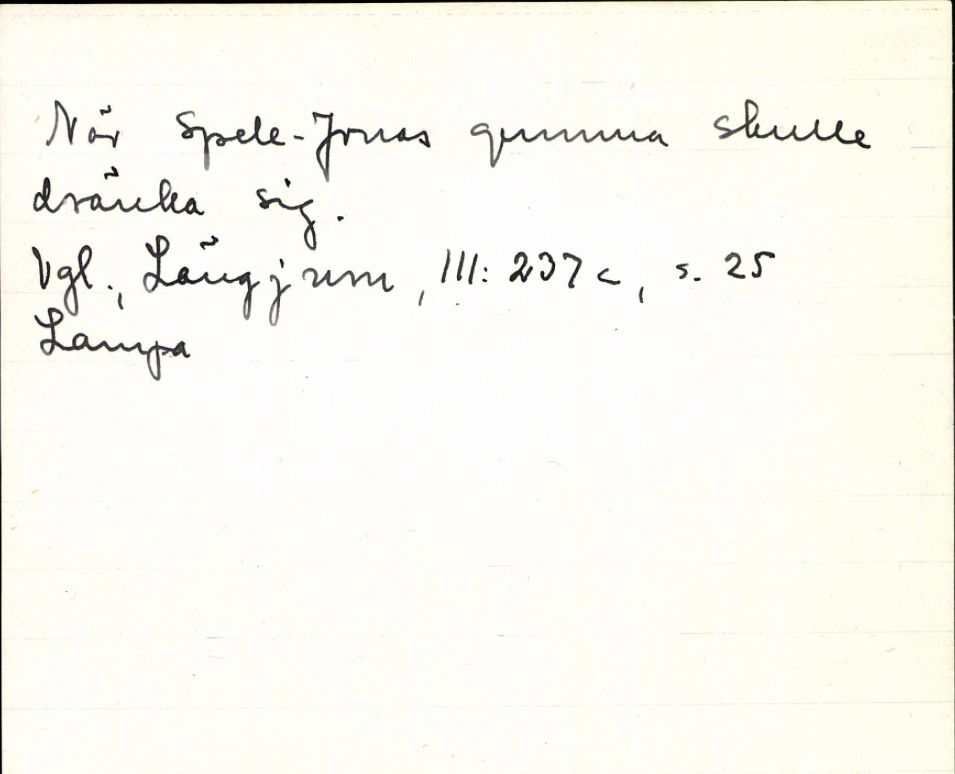 När Spele-Jonas gumma skulle
dränka sig.
Vgl., Långjum, III: 237 c, s. 25
Lampa